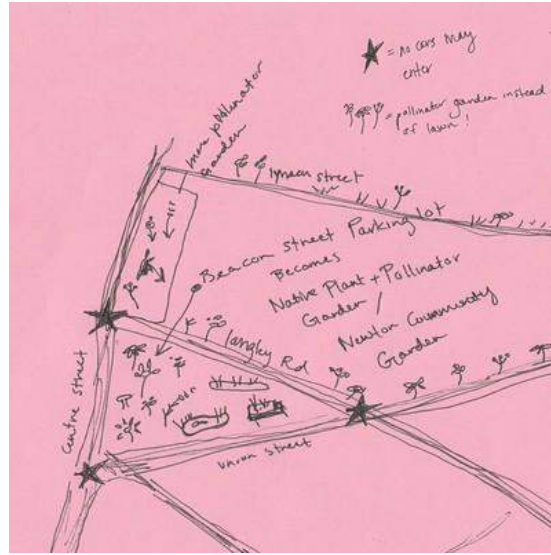 = no cars may
enter
= pollinator garden instead
of lawn!
more pollinator
garden
lyman street
Beacon street Parking lot
Becomes
Native Plant + Pollinator
Garden /
Newton Community
Garden
langley Rd
centre street
union street